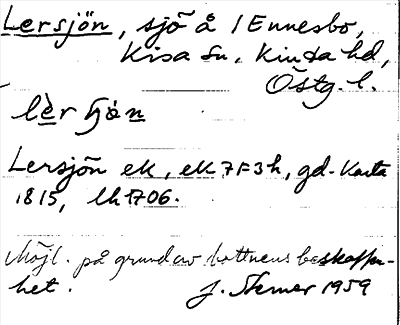 Lersjön, sjö å 1 Ennesbo,
Kisa sn, Kinda hd,
Östg. l.
lèr ʃö́n
Lersjön ek, ek 7F3h, gd-karta
1815, lh 1706.
Möjl. på grund av bottnens beskaffen-
het. J. Stemer 1959